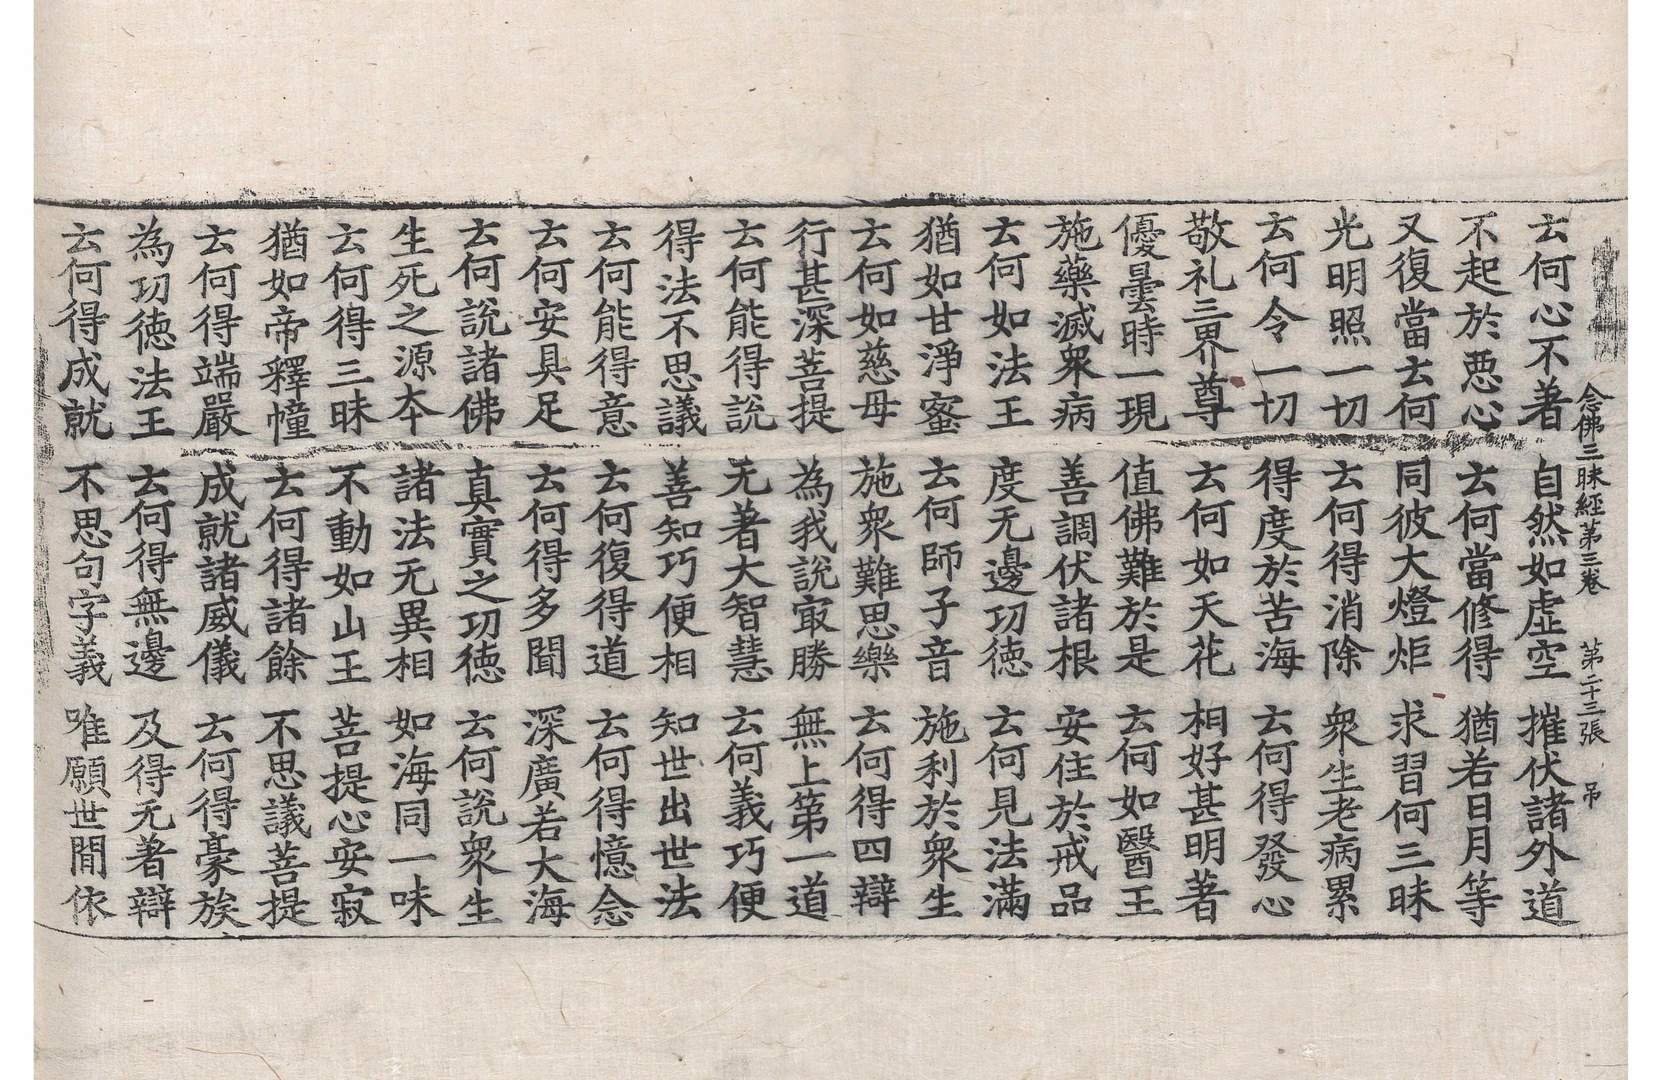 念佛三昧經第三卷 第二十三張 弔
云何心不著 自然如虛空 摧伏諸外道
不起於悪心 云何當修得 猶若日月等
又復當云何 同彼大燈炬 求習何三昧
光明照一切 云何得消除 衆生老病累
云何令一切 得度於苦海 云何得發心
敬礼三界尊 云何如天花 相好甚明著
優曇時一現 值佛難於是 云何如醫王
施藥滅衆病 善調伏諸根 安住於戒品
云何如法王 度无邊功徳 云何見法滿
猶如甘淨蜜 云何師子音 施利於衆生
云何如慈母 施衆難思樂 云何得四辯
行甚深菩提 為我說㝡勝 無上第一道
云何能得說 无著大智慧 云何義巧便
得法不思議 善知巧便相 知世出世法
云何能得意 云何復得道 云何得憶念
云何安具足 云何得多聞 深廣若大海
云何說諸佛 真實之功徳 云何說衆生
生死之源夲 諸法无異相 如海同一味
云何得三昧 不動如山王 菩提心安寂
猶如帝釋幢 云何得諸餘 不思議菩提
云何得端嚴 成就諸威儀 云何得豪族
為功徳法王 云何得無邊 及得无著辯
云何得成就 不思句字義 唯願世間依